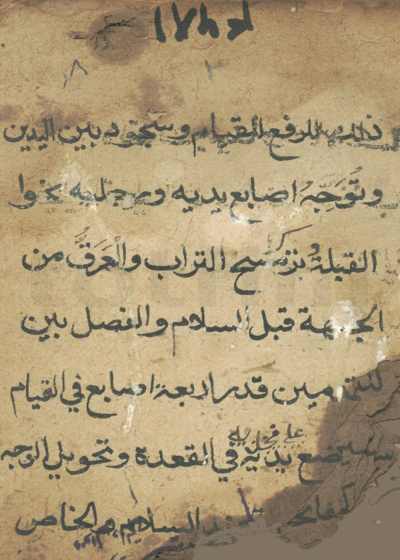 للرفع للقيام وسجود بين اليدين
وتوجه اصابع يديه ورجليه نحوا
القبلة وترك مسح التراب والعرق من
الجبهة قبل السلام والفصل بين
القدمين قدر اربعة اصابع في القيام
يضع يديه على فخذيه في القعدة وتحويل الوجه
عند السلام